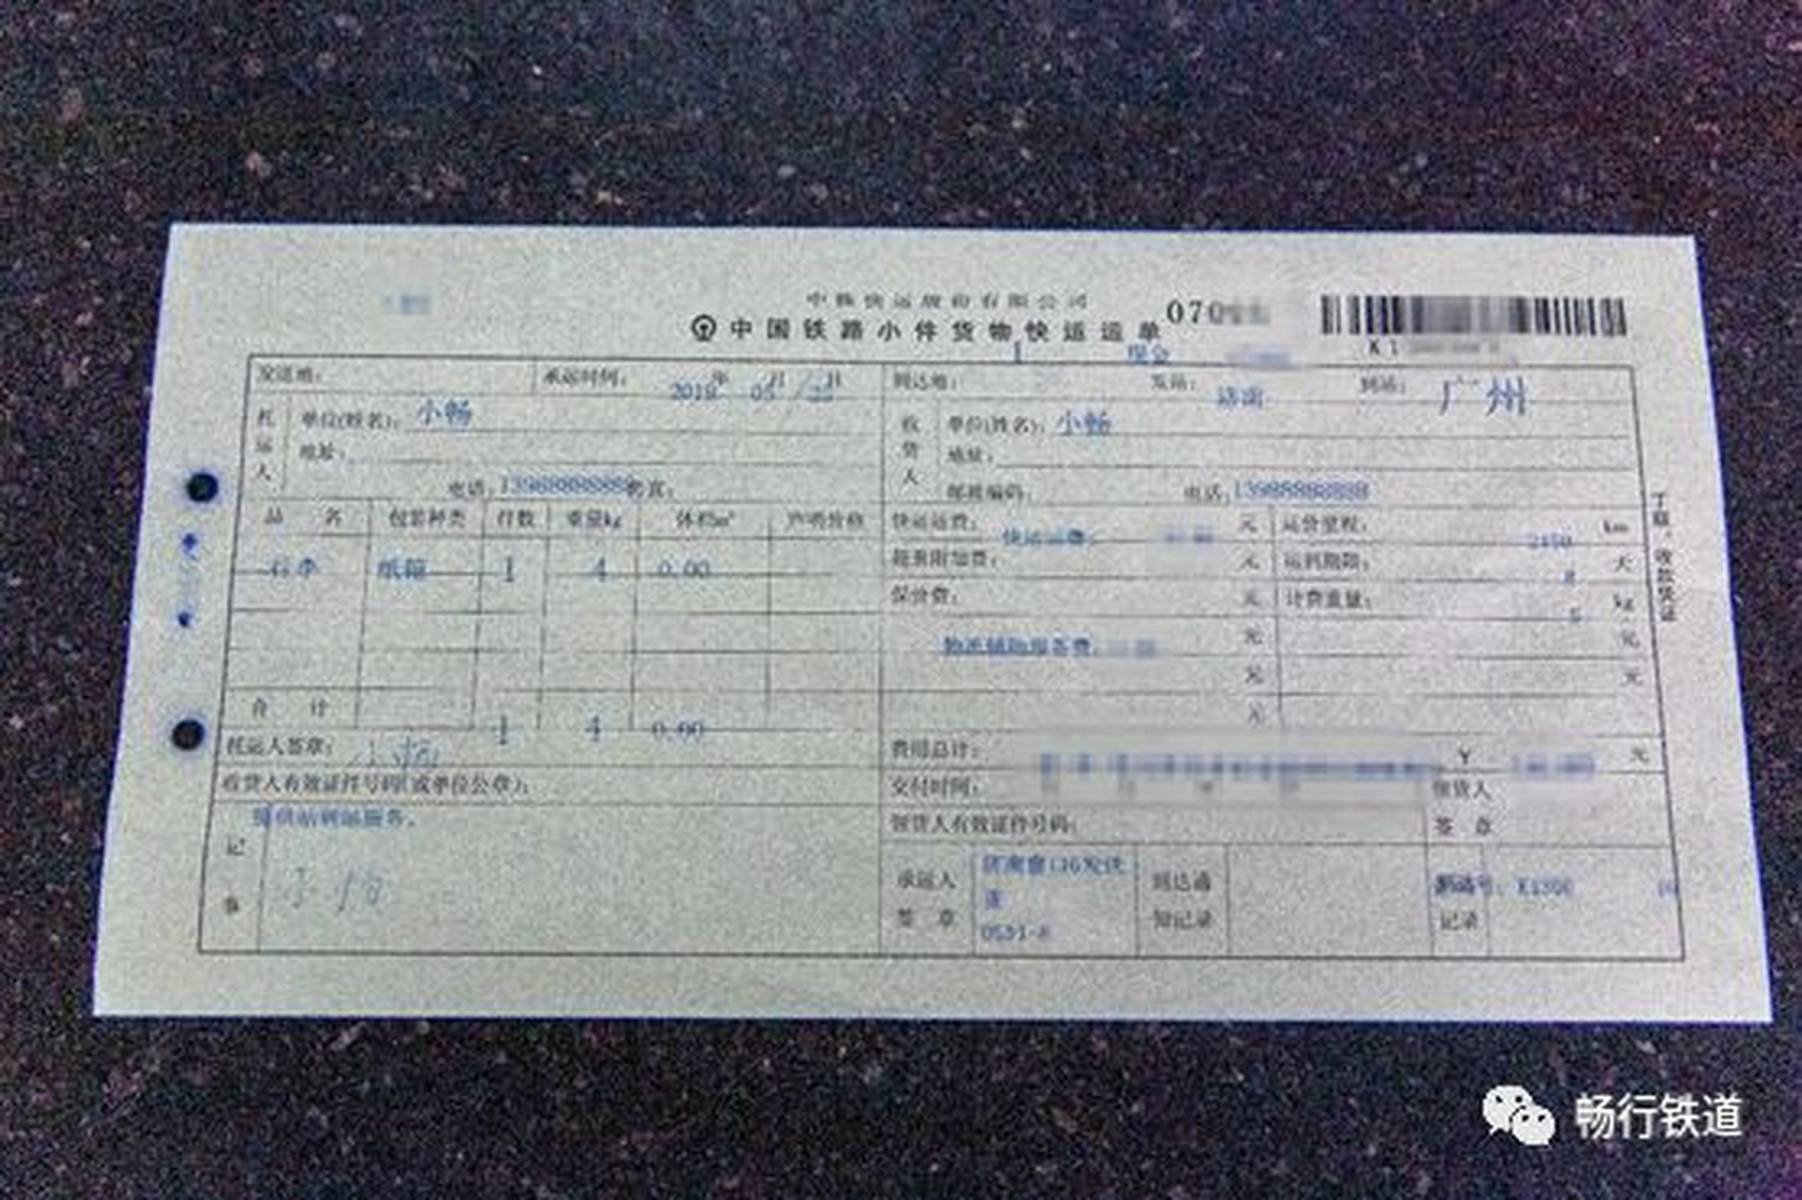 中铁快运股份有限公司
中国铁路小件货物快运运单
070
K1
现金
发送地: 承运时间: 2018 年 05 月 22 日 到达地: 发站: 济南 到站: 广州
托运人 单位(姓名): 小畅 收货人 单位(姓名): 小畅
地址: 地址:
电话: 13988888888 传真: 邮政编码: 电话: 13988888888
品名 包装种类 件数 重量kg 体积m³ 声明价格 快运运费: 快运运费: 元 运价里程: km
行李 纸箱 1 4 0.00 超重附加费: 元 运到期限: 8 天
保价费: 元 计费重量: 5 kg
元 元
元 元
合计 1 4 0.00 元
托运人签章: 小畅 费用总计: ¥ 元
收货人有效证件号码(或单位公章): 交付时间: 领货人签章
提供站到站服务. 领货人有效证件号码:
记事 小畅 承运人签章 到达通知记录 记录
丁联: 收款凭证
畅行铁道